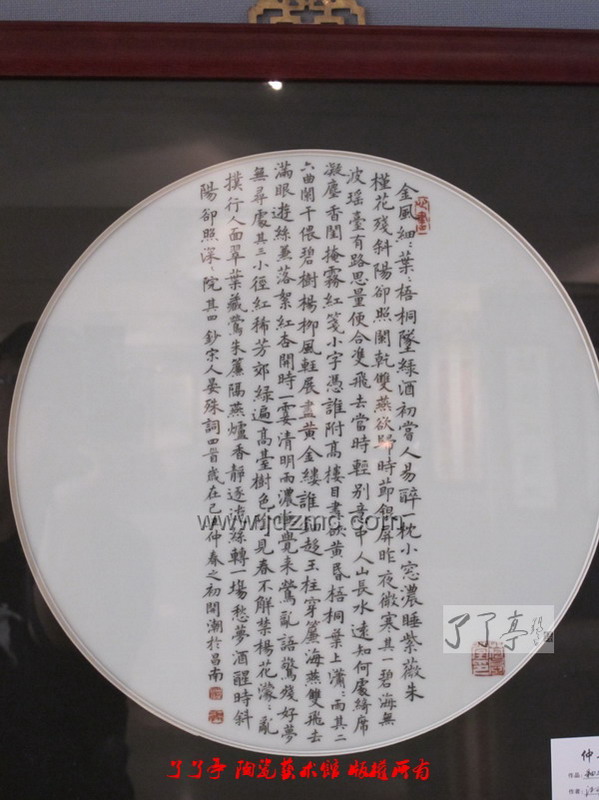 金風細〻葉〻梧桐墜綠酒初嘗人易醉一枕小窓濃睡紫薇朱
槿花殘斜陽卻照闌乾雙燕欲歸時節銀屏昨夜微寒其一碧海無
波瑤臺有路思量便合雙飛去當時輕別意中人山長水遠知何處綺席
凝塵香閨掩霧紅箋小字憑誰附高樓目盡欲黃昏梧桐葉上瀟〻雨其二
六曲闌干偎碧樹楊柳風輕展盡黃金縷誰玉柱穿簾海燕雙飛去
滿眼遊絲兼落絮紅杏開時一霎清明雨濃睡覺來鶯亂語驚殘好夢
無尋處其三小徑紅稀芳郊綠遍高臺樹色見春不解禁楊花濛〻亂
撲行人面翠葉藏鶯朱簾隔燕爐香靜逐游絲轉一場愁夢酒醒時斜
陽卻照深〻院其四鈔宋人晏殊詞四首歲在己丑仲春之初閒潮於昌南
www.jdzmc.com
了了亭
了了亭 陶瓷藝术館 版權所有
仲
作品:
作者: